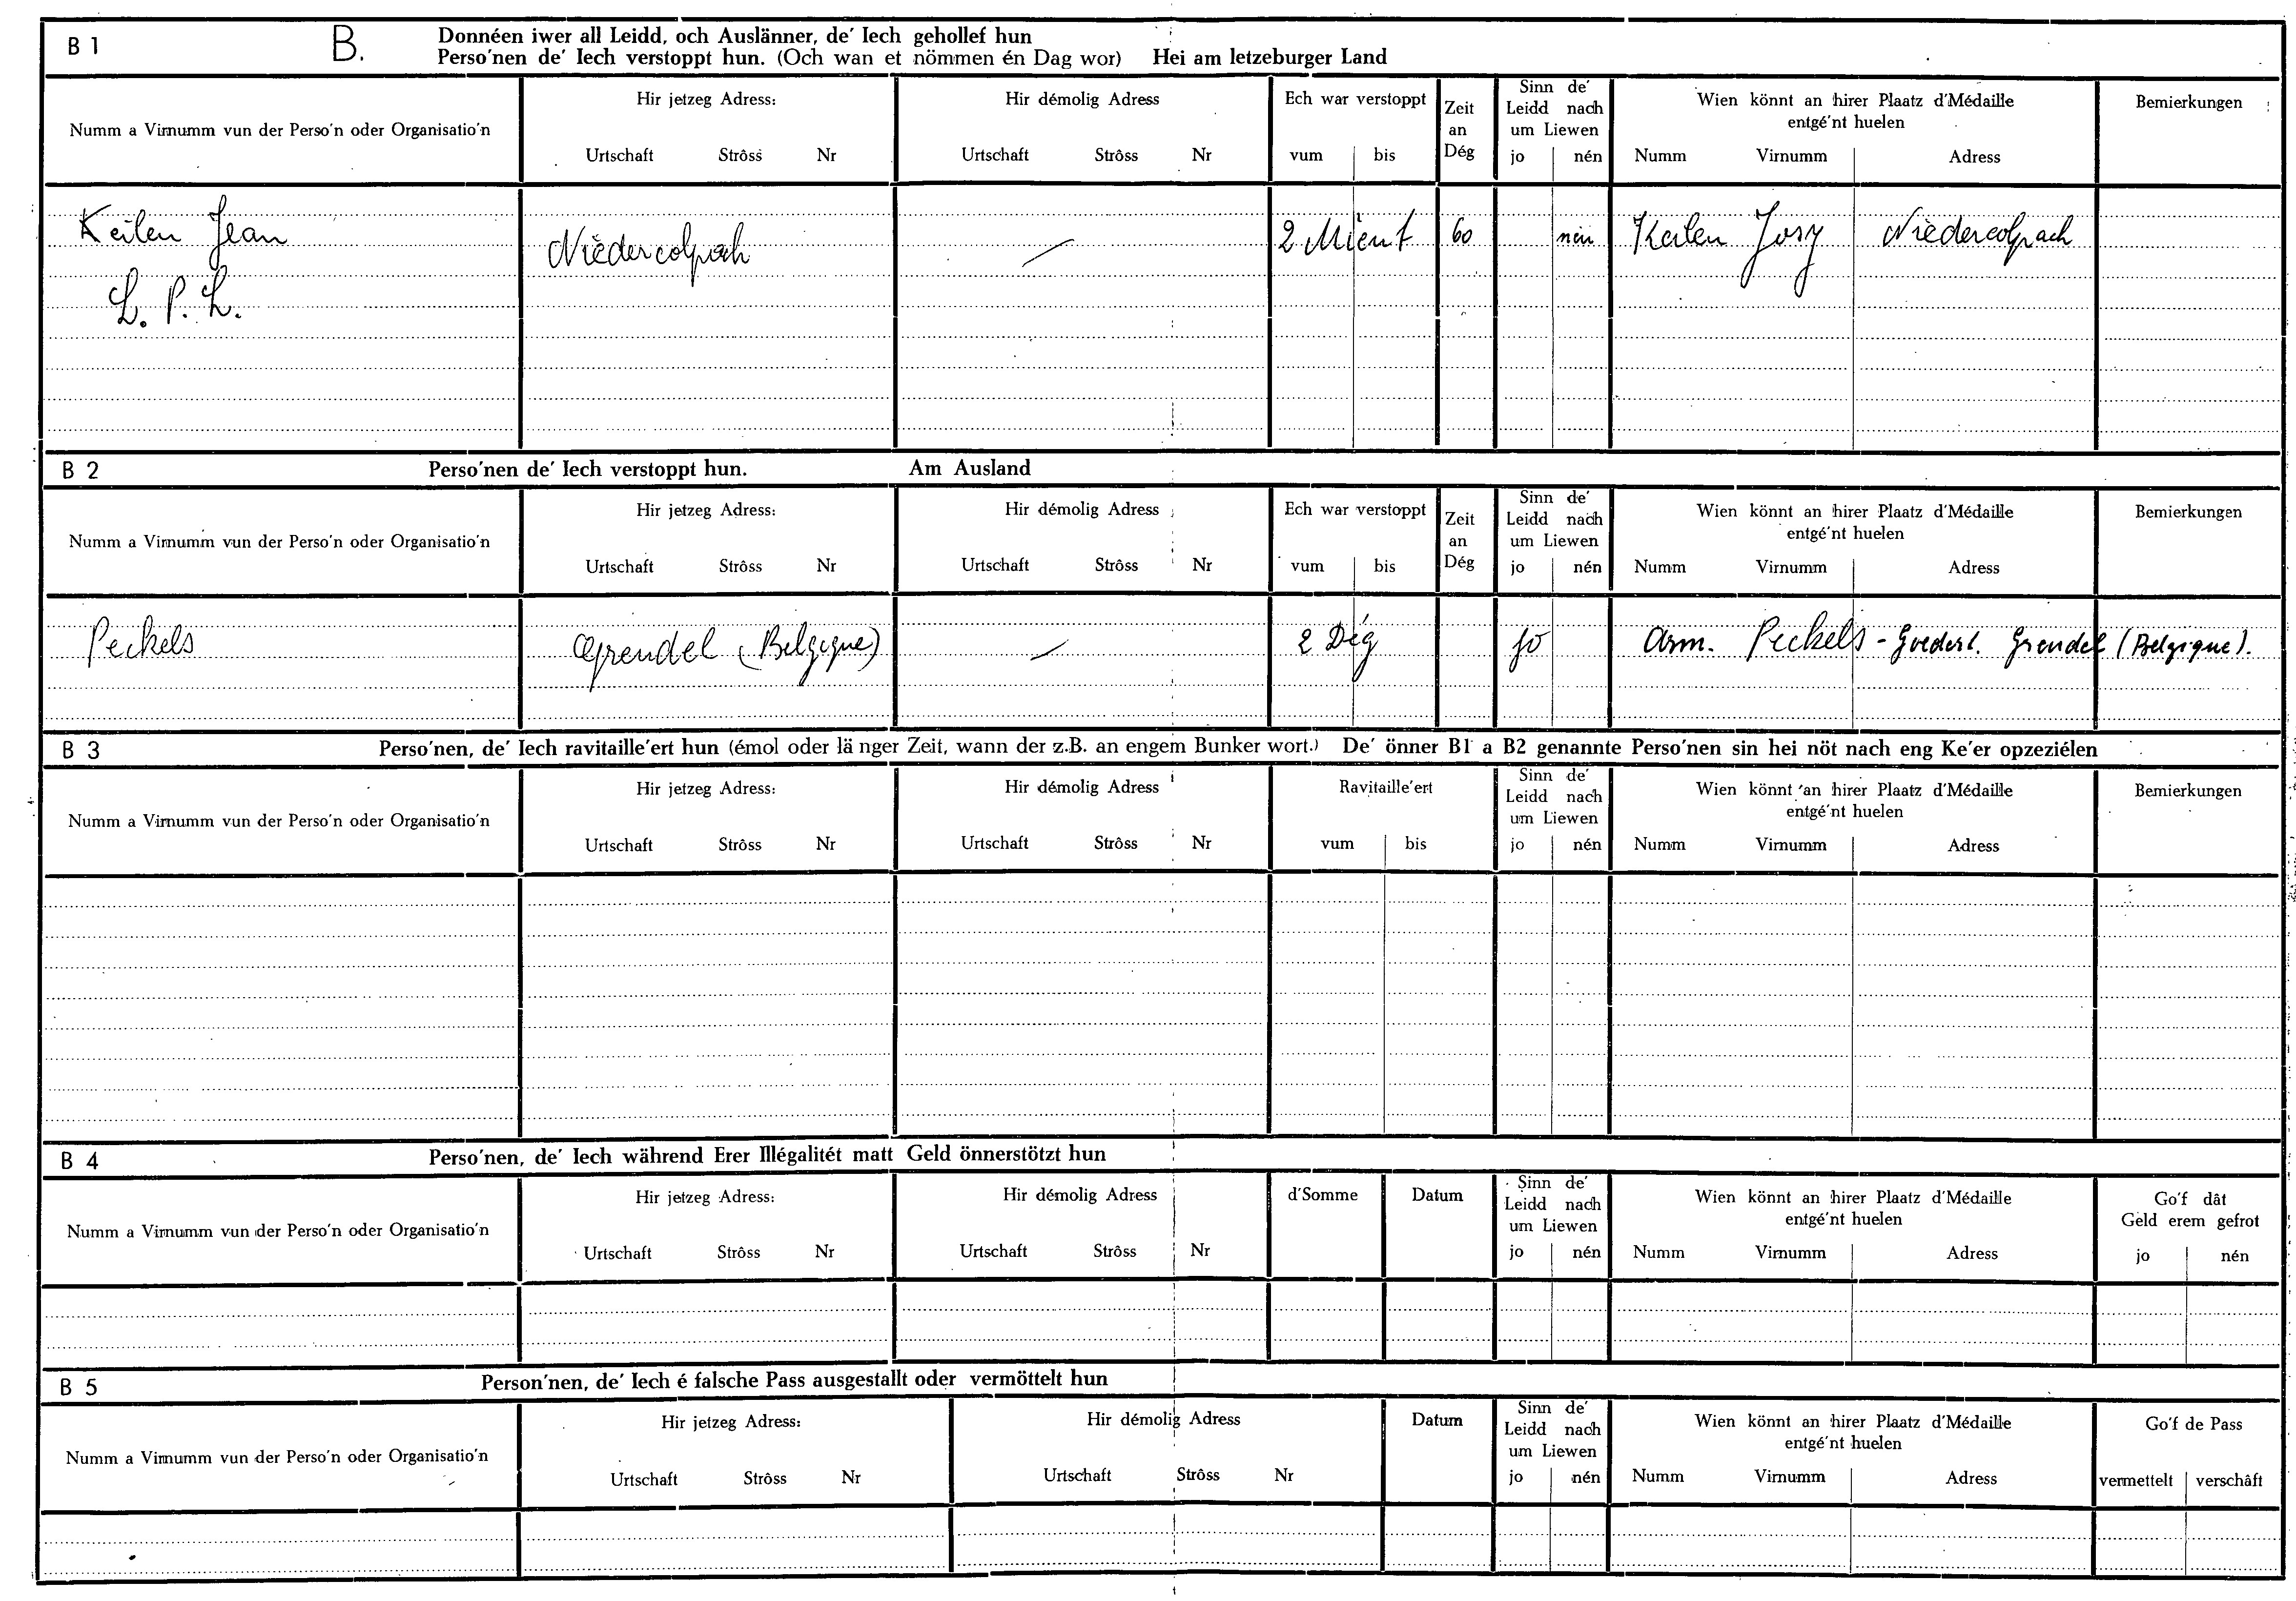 B 1 B. Donnéen iwer all Leidd, och Auslänner, de' Iech gehollef hun
Perso'nen de' Iech verstoppt hun. (Och wan et nömmen én Dag wor) Hei am letzeburger Land
Numm a Virnumm vun der Perso'n oder Organisatio'n
Hir jetzeg Adress:
Urtschaft Strôss Nr
Hir démolig Adress
Urtschaft Strôss Nr
Ech war verstoppt
vum bis
Zeit
an
Dég
Sinn de'
Leidd nach
um Liewen
jo nén
Wien könnt an hirer Plaatz d'Médaille
entgé'nt huelen
Numm Virnumm Adress
Bemierkungen
Keilen Jean Niedercolpach — 2 Mient 60 nén Keilen Josy Niedercolpach
L. P. L.
B 2 Perso'nen de' Iech verstoppt hun. Am Ausland
Numm a Virnumm vun der Perso'n oder Organisatio'n
Hir jetzeg Adress:
Urtschaft Strôss Nr
Hir démolig Adress
Urtschaft Strôss Nr
Ech war verstoppt
vum bis
Zeit
an
Dég
Sinn de'
Leidd nach
um Liewen
jo nén
Wien könnt an hirer Plaatz d'Médaille
entgé'nt huelen
Numm Virnumm Adress
Bemierkungen
Peckels Grendel (Belgique) — 2 Dég jo Arm. Peckels - Goedert. Grendel (Belgique).
B 3 Perso'nen, de' Iech ravitaille'ert hun (émol oder länger Zeit, wann der z.B. an engem Bunker wort.) De' önner B1 a B2 genannte Perso'nen sin hei nöt nach eng Ke'er opzeziélen
Numm a Virnumm vun der Perso'n oder Organisatio'n
Hir jetzeg Adress:
Urtschaft Strôss Nr
Hir démolig Adress
Urtschaft Strôss Nr
Ravitaille'ert
vum bis
Sinn de'
Leidd nach
um Liewen
jo nén
Wien könnt an hirer Plaatz d'Médaille
entgé'nt huelen
Numm Virnumm Adress
Bemierkungen
B 4 Perso'nen, de' Iech während Erer Illégalitét matt Geld önnerstötzt hun
Numm a Virnumm vun der Perso'n oder Organisatio'n
Hir jetzeg Adress:
Urtschaft Strôss Nr
Hir démolig Adress
Urtschaft Strôss Nr
d'Somme
Datum
Sinn de'
Leidd nach
um Liewen
jo nén
Wien könnt an hirer Plaatz d'Médaille
entgé'nt huelen
Numm Virnumm Adress
Go'f dât
Geld erem gefrot
jo nén
B 5 Person'nen, de' Iech é falsche Pass ausgestallt oder vermöttelt hun
Numm a Virnumm vun der Perso'n oder Organisatio'n
Hir jetzeg Adress:
Urtschaft Strôss Nr
Hir démolig Adress
Urtschaft Strôss Nr
Datum
Sinn de'
Leidd nach
um Liewen
jo nén
Wien könnt an hirer Plaatz d'Médaille
entgé'nt huelen
Numm Virnumm Adress
Go'f de Pass
vermettelt verschâft